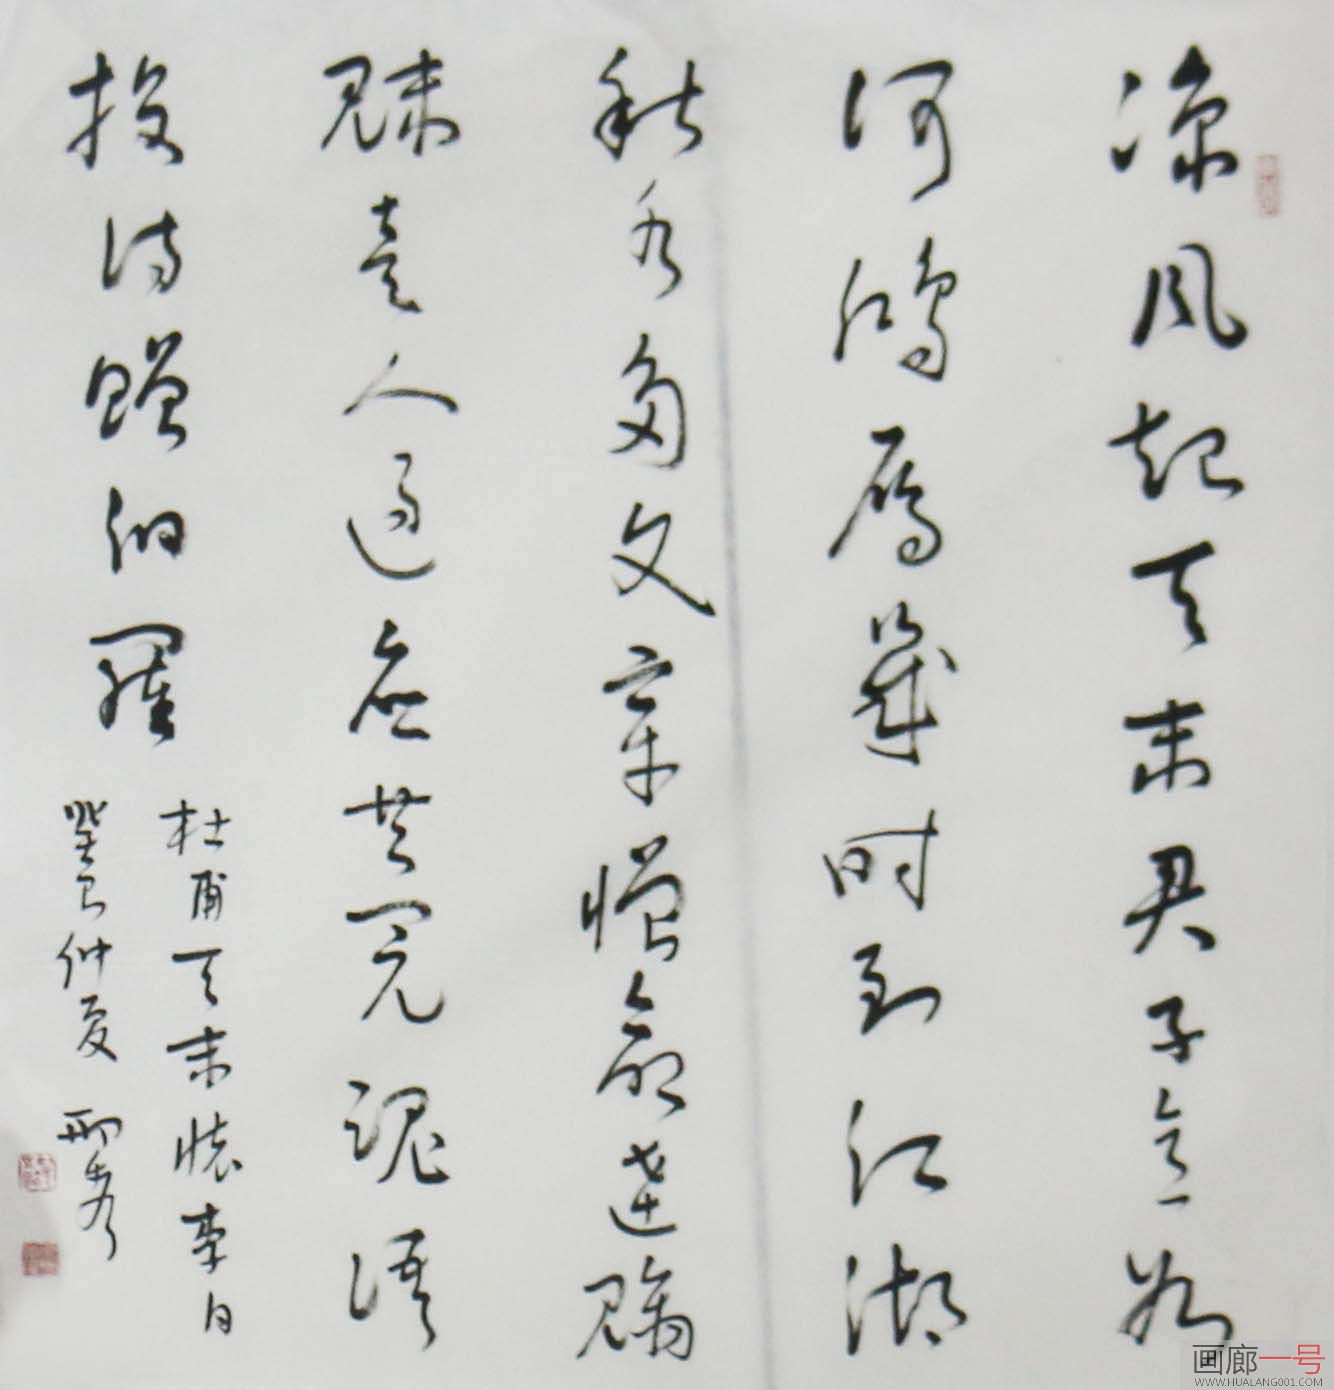 凉風起天末君子意如
何鴻雁幾时到江湖
秋水多文章憎命達魑
魅喜人過應共冤魂語
投詩贈汨羅
杜甫天末懷李白
癸巳仲夏
画廊一号
WWW.HUALANG001.COM